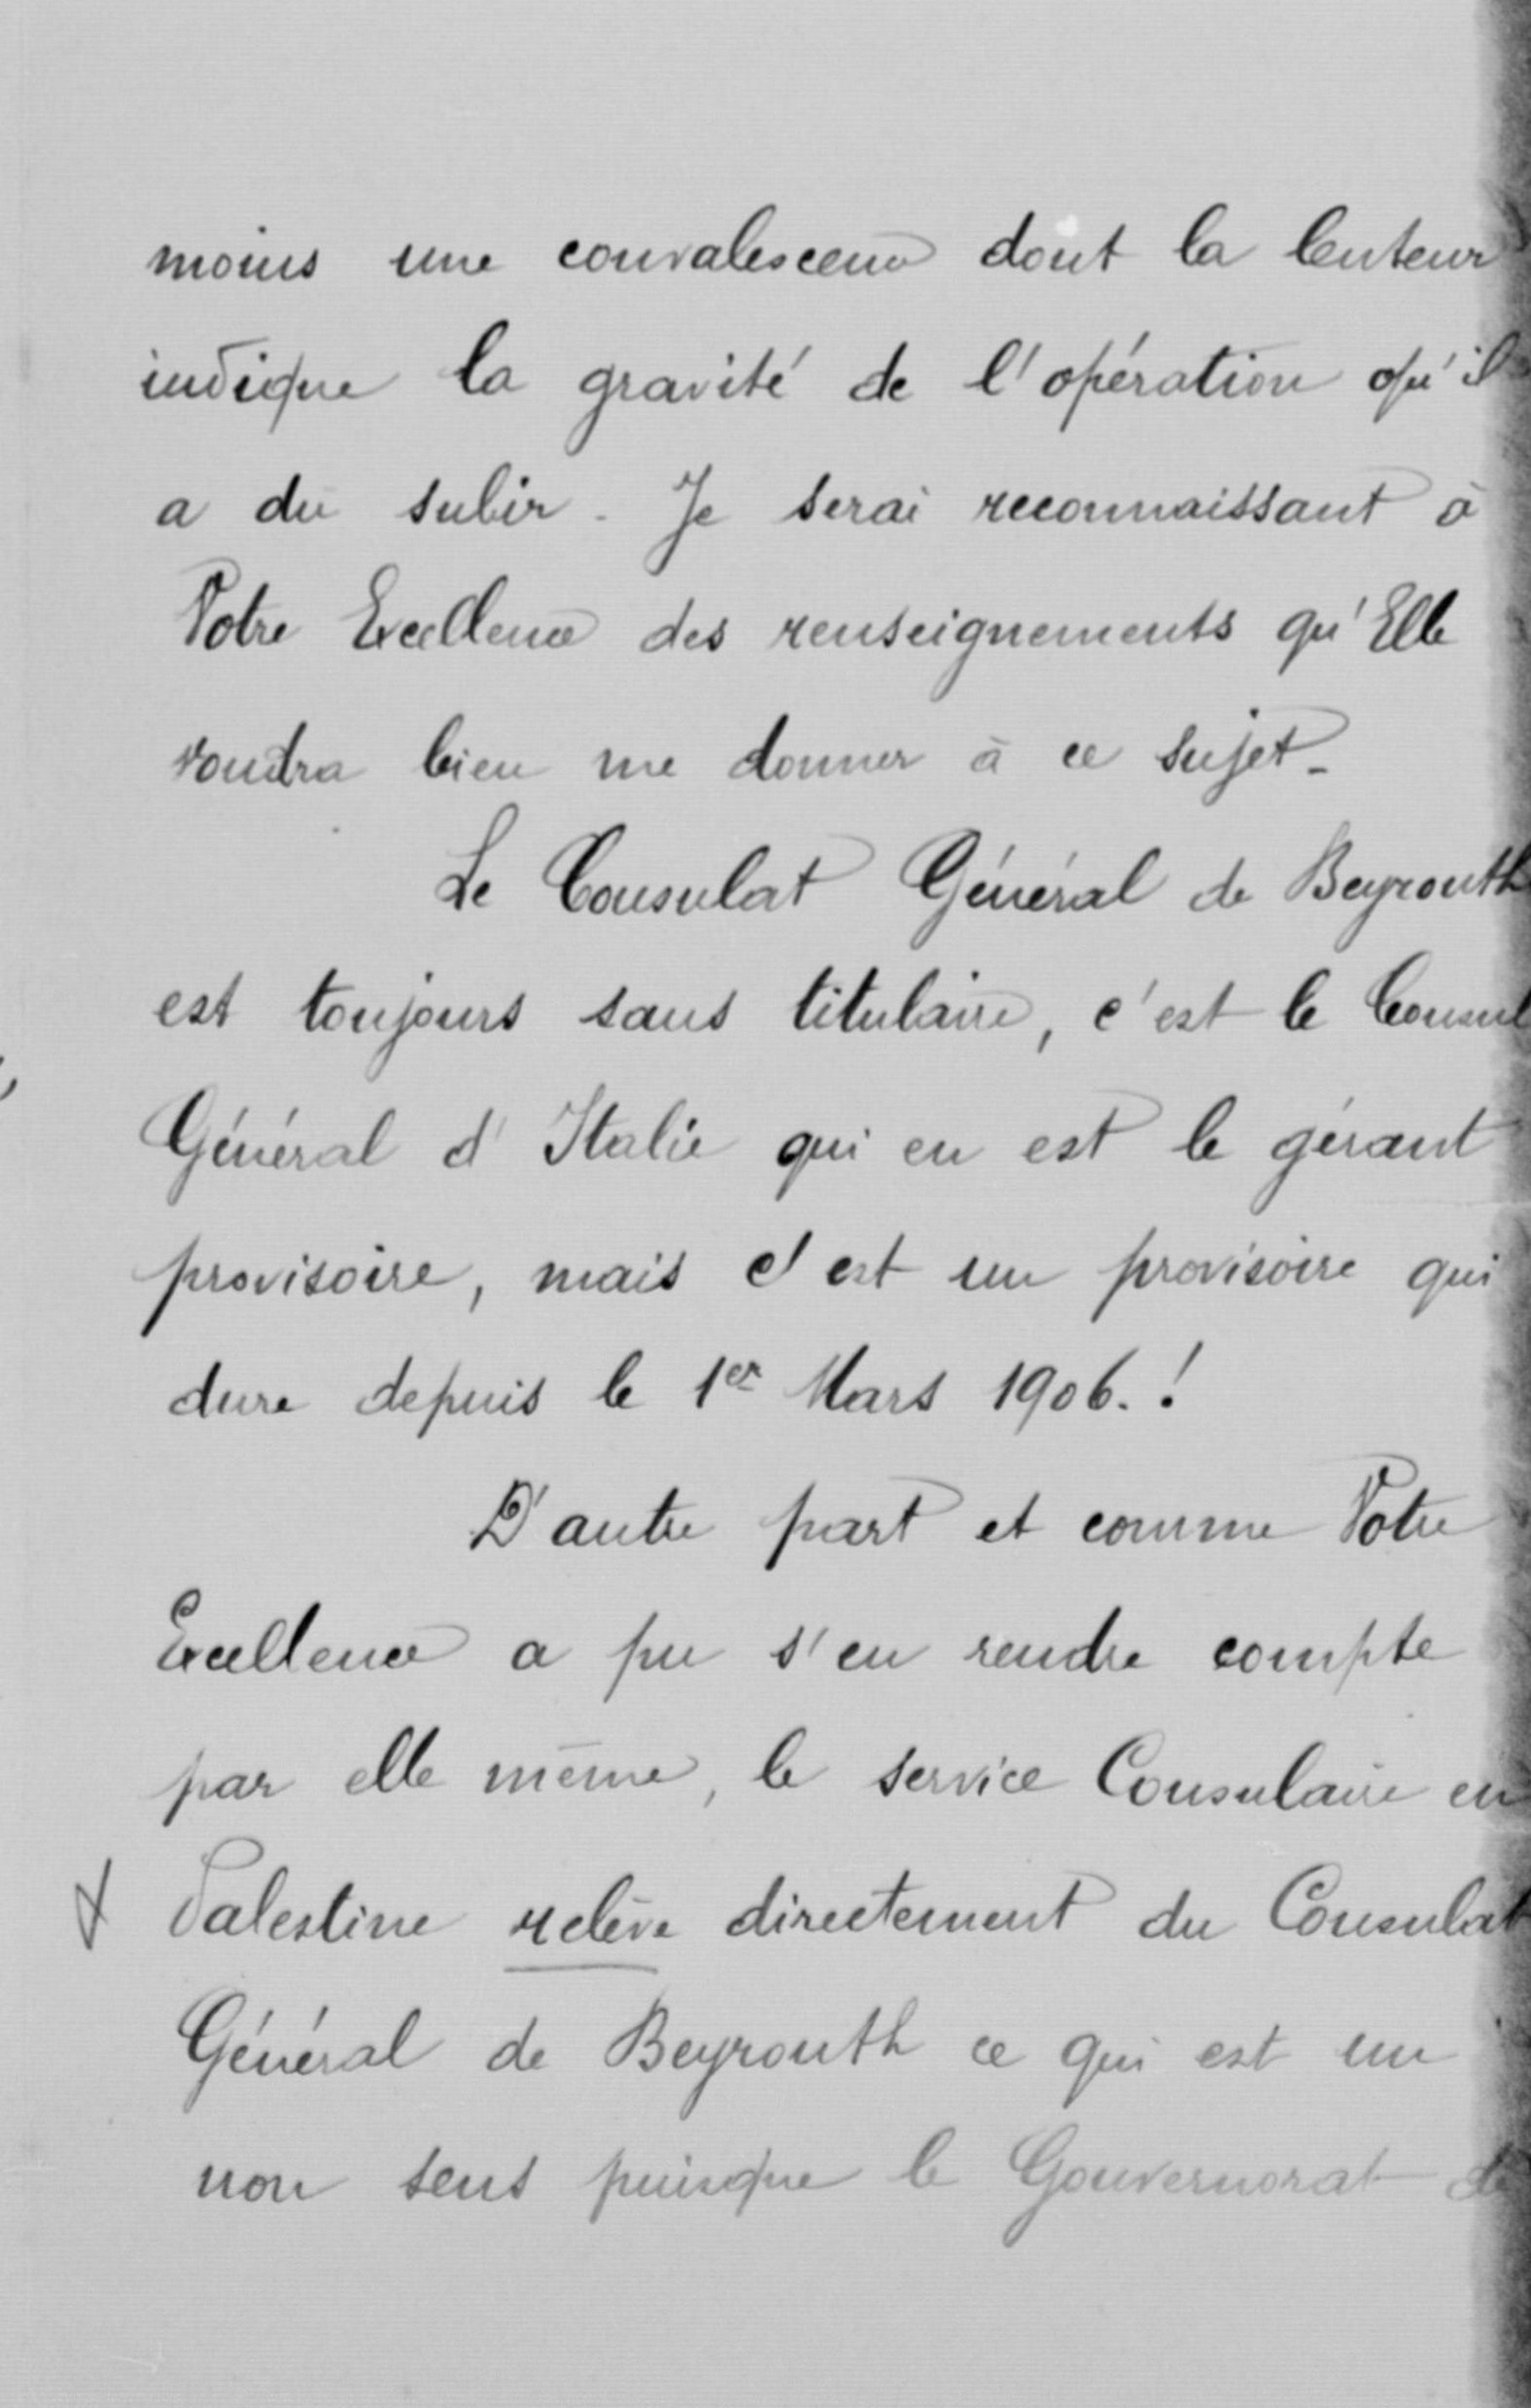 moins une convalescence dont la lenteur
indique la gravité de l'opération qu'il
a dû subir. Je serai reconnaissant à
Votre Excellence des renseignements qu'Elle
voudra bien me donner à ce sujet.
Le Consulat Général de Beyrouth
est toujours sans titulaire, c'est le Consul
Général d'Italie qui en est le gérant
provisoire, mais c'est un provisoire qui
dure depuis le 1er Mars 1906. !
D'autre part et comme Votre
Excellence a pu s'en rendre compte
par elle même, le service Consulaire en
Palestine relève directement du Consulat
Général de Beyrouth ce qui est un
non sens puisque le Gouvernorat de